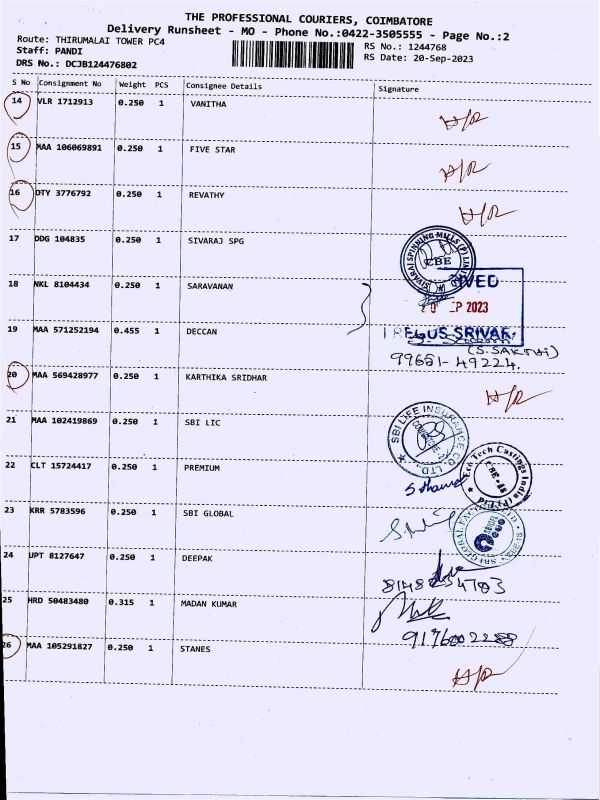 THE PROFESSIONAL COURIERS, COIMBATORE
Delivery Runsheet - MO - Phone No.:0422-3505555 - Page No.:2
Route: THIRUMALAI TOWER PC4
RS No.: 1244768
Staff: PANDI
RS Date: 20-Sep-2023
DRS No.: DCJB124476802
S No Consignment No Weight PCS Consignee Details Signature
14 VLR 1712913 0.250 1 VANITHA H/R
15 MAA 106069891 0.250 1 FIVE STAR H/R
16 DTY 3776792 0.250 1 REVATHY H/R
17 DDG 104835 0.250 1 SIVARAJ SPG
SIVARAJ SPINNING MILLS (P) LIMITED
CBE
18 NKL 8104434 0.250 1 SARAVANAN
IVED
20 SEP 2023
19 MAA 571252194 0.455 1 DECCAN
REGUS SRIVAR
(S.SAKTHI)
99651-49224.
20 MAA 569428977 0.250 1 KARTHIKA SRIDHAR H/R
21 MAA 102419869 0.250 1 SBI LIC
SBI LIFE INSURANCE CO. LTD.
COIMBATORE
22 CLT 15724417 0.250 1 PREMIUM
Eco Tech Castings India (P) Ltd
CBE-18
23 KRR 5783596 0.250 1 SBI GLOBAL
SBI GLOBAL
24 UPT 8127647 0.250 1 DEEPAK
25 HRD 50483480 0.315 1 MADAN KUMAR
26 MAA 105291827 0.250 1 STANES H/R